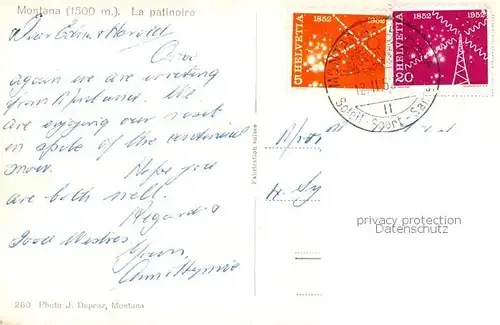 Montana (1500 m.). La patinoire
Dear Ednr & Harold
Once
again we are writing
from Montana. We
are enjoying our visit
in spite of the continual
snow. Hope you
are both well.
Regards
Good Wishes
Yours
Fabrication suisse
5 HELVETIA 1852 1952
20 HELVETIA 1852 1952
MONTANA
12.II.53
11
Soleil-Sport-Santé
privacy protection
Datenschutz
260 Photo J. Daproz, Montana